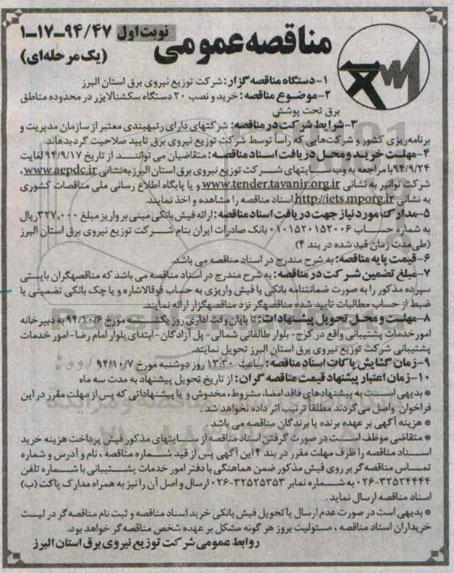 مناقصه عمومی
نوبت اول
۱-۱۷-۹۴/۴۷
(یک مرحله‌ای)
۱-دستگاه مناقصه گزار: شرکت توزیع نیروی برق استان البرز
۲-موضوع مناقصه: خرید و نصب ۲۰ دستگاه سکشنالایزر در محدوده مناطق
برق تحت پوشش
۳-شرایط شرکت در مناقصه: شرکتهای دارای رتبه‌بندی معتبر از سازمان مدیریت و
برنامه‌ریزی کشور و شرکت‌هایی که راساً توسط شرکت توزیع نیروی برق تایید صلاحیت گردیده‌اند.
۴-مهلت خرید و محل دریافت اسناد مناقصه: متقاضیان می توانند از تاریخ ۹۴/۹/۱۷ لغایت
۹۴/۹/۲۴ با مراجعه به وب سایتهای شرکت توزیع نیروی برق استان البرز به نشانی www.aepdc.ir
شرکت توانیر به نشانی www.tender.tavanir.org.ir و یا پایگاه اطلاع رسانی ملی مناقصات کشوری
به نشانی http://iets.mporg.ir اسناد مناقصه را مشاهده و اخذ نمایند.
۵-مدارک مورد نیاز جهت دریافت اسناد مناقصه: ارائه فیش بانکی مبنی بر واریز مبلغ ۳۲۷,۰۰۰ ریال
به شماره حساب ۰۱۰۱۵۲۰۱۵۲۰۰۶ بانک صادرات ایران بنام شرکت توزیع نیروی برق استان البرز
(طی مدت زمان قید شده در بند ۴)
۶-قیمت پایه مناقصه: به شرح مندرج در اسناد مناقصه می باشد.
۷-مبلغ تضمین شرکت در مناقصه: به شرح مندرج در اسناد مناقصه می باشد که مناقصه‌گران بایستی
سپرده مذکور را به صورت ضمانتنامه بانکی یا فیش واریزی به حساب فوق‌الاشاره و یا چک بانکی تضمینی یا
ضبط از حساب مطالبات تایید شده مناقصه‌گر نزد مناقصه‌گزار ارائه نمایند.
۸-مهلت و محل تحویل پیشنهادات: تا پایان وقت اداری روز یکشنبه مورخ ۹۴/۱۰/۶ به دبیرخانه
امور خدمات پشتیبانی واقع در کرج- بلوار طالقانی شمالی- پل آزادگان- ابتدای بلوار امام رضا- امور خدمات
پشتیبانی شرکت توزیع نیروی برق استان البرز تحویل نمایند.
۹-زمان گشایش پاکات اسناد مناقصه: ساعت ۱۳:۳۰ روز دوشنبه مورخ ۹۴/۱۰/۷
۱۰-زمان اعتبار پیشنهاد قیمت مناقصه گران: از تاریخ تحویل پیشنهاد به مدت سه ماه
* بدیهی است به پیشنهادهای فاقد امضا، مشروط، مخدوش و یا پیشنهاداتی که پس از مهلت مقرر در این
فراخوان واصل می گردند مطلقاً ترتیب اثر داده نخواهد شد.
* هزینه آگهی بر عهده برنده یا برندگان مناقصه می باشد
* متقاضی موظف است در صورت گرفتن اسناد مناقصه از سایتهای مذکور فیش پرداخت هزینه خرید
اسناد مناقصه را ظرف مهلت مقرر در بند ۴ این آگهی پس از قید شماره مناقصه، نام و آدرس و شماره
تماس مناقصه‌گر بر روی فیش مذکور ضمن هماهنگی با دفتر امور خدمات پشتیبانی با شماره تلفن
۰۲۶-۳۲۵۲۴۴۴۴ به شماره نمابر ۰۲۶-۳۲۵۲۵۳۵۳ ارسال و اصل آن را نیز به همراه مدارک پاکت (ب)
اسناد مناقصه ارسال نماید.
* بدیهی است در صورت عدم ارسال یا تحویل فیش بانکی خرید اسناد مناقصه و ثبت نام مناقصه‌گر در لیست
خریداران اسناد مناقصه، مسئولیت بروز هر گونه مشکل بر عهده شخص مناقصه‌گر خواهد بود.
روابط عمومی شرکت توزیع نیروی برق استان البرز